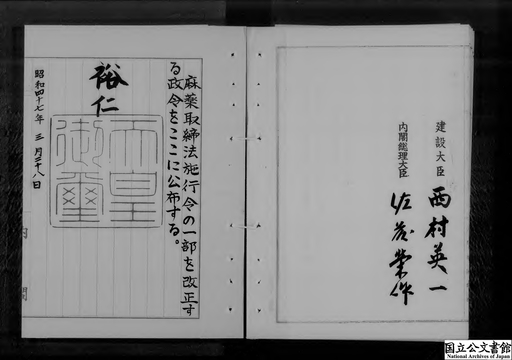 建設大臣 西村英一
内閣総理大臣 佐藤榮作
麻薬取締法施行令の一部を改正す
る政令をここに公布する。
裕仁
天皇御璽
昭和四十七年三月二十八日
内閣
国立公文書館
National Archives of Japan